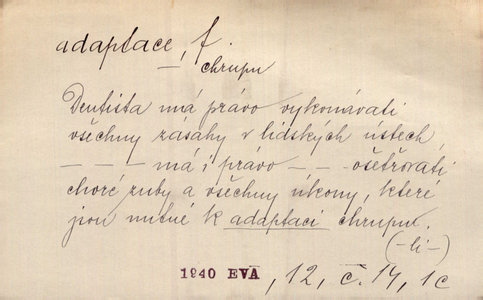 adaptace, f.
chrupu
Dentista má právo vykonávati
všechny zásahy v lidských ústech
– – – má i právo – – – ošetřovati
choré zuby a všechny úkony, které
jsou nutné k adaptaci chrupu.
(–li–)
1940 EVA, 12, č. 14, 1c